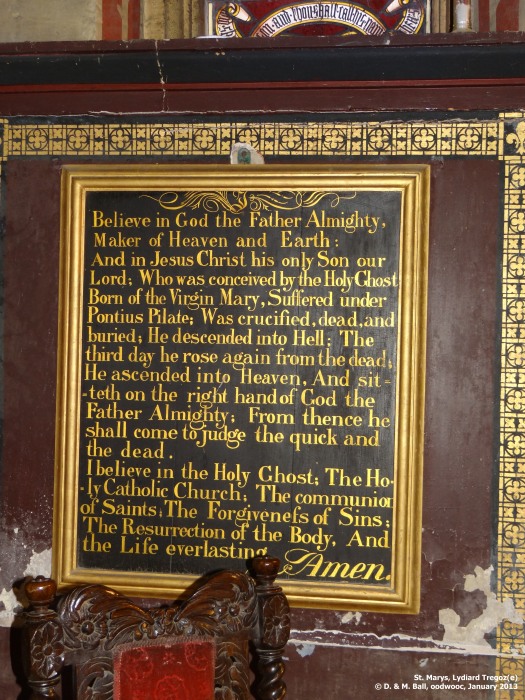 and-thou-shalt-call-his-nam
Believe in God the Father Almighty,
Maker of Heaven and Earth:
And in Jesus Christ his only Son our
Lord; Who was conceived by the Holy Ghost
Born of the Virgin Mary, Suffered under
Pontius Pilate; Was crucified, dead, and
buried; He descended into Hell; The
third day he rose again from the dead;
He ascended into Heaven, And sit-
-teth on the right hand of God the
Father Almighty; From thence he
shall come to judge the quick and
the dead.
I believe in the Holy Ghost; The Ho-
-ly Catholic Church; The communion
of Saints; The Forgivenefs of Sins;
The Resurrection of the Body, And
the Life everlasting Amen.
St. Marys, Lydiard Tregoz(e)
© D. & M. Ball, oodwooc, January 2013